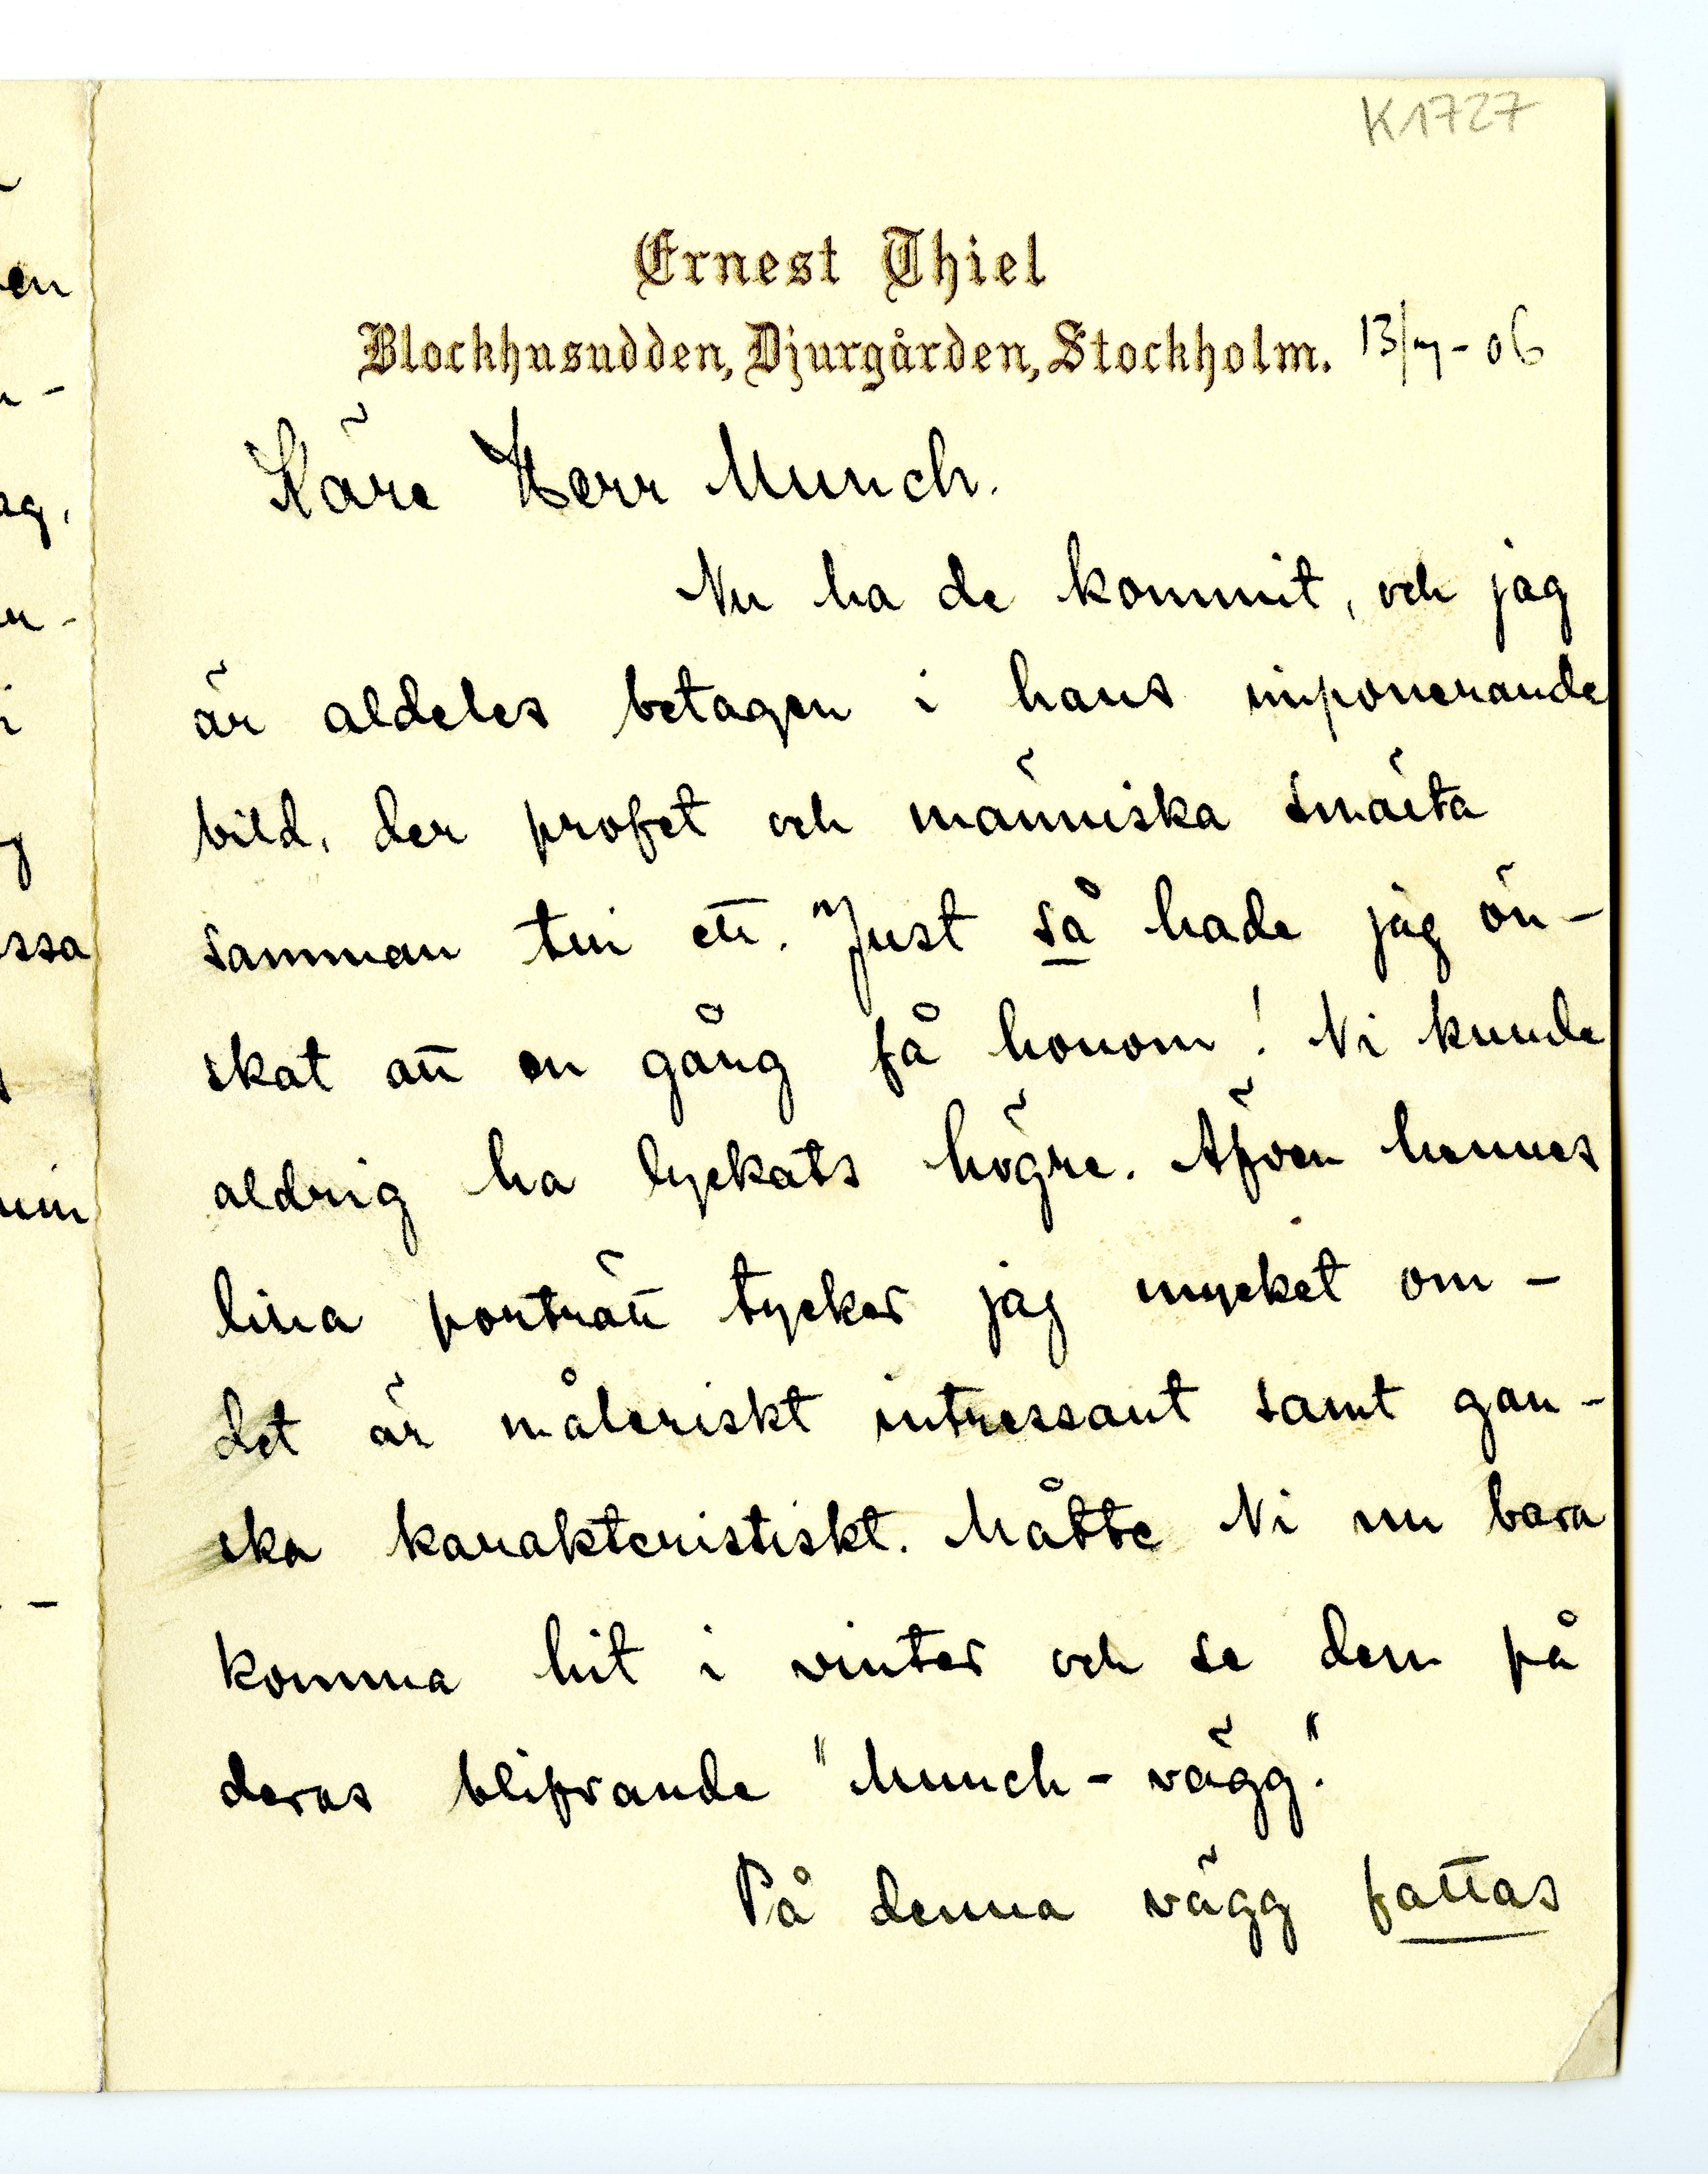 K1727
Ernest Thiel
Blockhusudden, Djurgården, Stockholm. 13/ - 06
Käre Herr Munch.
Nu ha de kommit, och jag
är aldeles betagen i hans imponerande
bild, der profet och människa smälta
samman till ett. Just så hade jag ön-
skat att en gång få honom! Ni kunde
aldrig ha lyckats högre. Äfven hennes
lilla porträtt tycker jag mycket om -
det är måleriskt intressant samt gan-
ska karakteristiskt. Måtte Ni nu bara
komma hit i vinter och se dem på
deras blifvande "Munch-vägg".
På denna vägg fattas
en
-
ag,
-
ssa
-